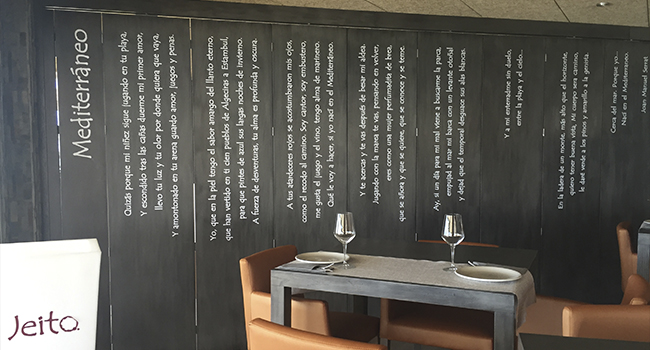 Mediterráneo
Quizás porque mi niñez sigue jugando en tu playa,
Y escondido tras las cañas duerme mi primer amor,
llevo tu luz y tu olor por donde quiera que vaya,
Y amontonado en tu arena guardo amor, juegos y penas.
Yo, que en la piel tengo el sabor amargo del llanto eterno,
que han vertido en ti cien pueblos de Algeciras a Estambul,
para que pintes de azul sus largas noches de invierno.
A fuerza de desventuras, tu alma es profunda y oscura.
A tus atardeceres rojos se acostumbraron mis ojos,
como el recodo al camino. Soy cantor, soy embustero,
me gusta el juego y el vino, tengo alma de marinero.
Qué le voy a hacer, si yo nací en el Mediterráneo.
Y te acercas y te vas después de besar mi aldea.
Jugando con la marea te vas, pensando en volver,
eres como una mujer perfumadita de brea,
que se añora y que se quiere, que se conoce y se teme.
Ay, si un día para mi mal viene a buscarme la parca,
empujad al mar mi barca con un levante otoñal
y dejad que el temporal desguace sus alas blancas.
Y a mí enterradme sin duelo,
entre la playa y el cielo...
En la ladera de un monte, más alto que el horizonte,
quiero tener buena vista. Mi cuerpo será camino,
le daré verde a los pinos y amarillo a la genista
Cerca del mar. Porque yo...
Nací en el Mediterráneo.
Joan Manuel Serrat
Jeito.